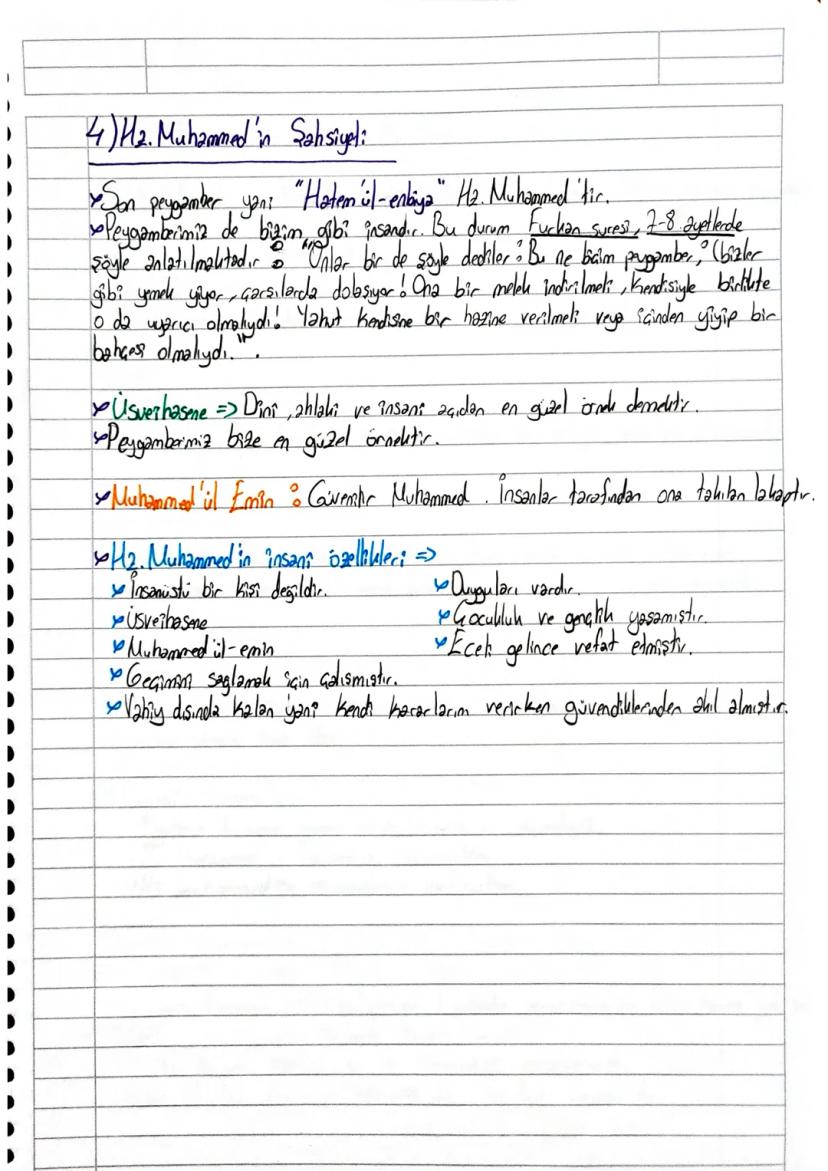 4) Hz. Muhammed'in Şahsiyeti
Son peygamber yani "Hatem'ül-enbiya" Hz. Muhammed'tir.
Peygamberimiz de bizim gibi insandır. Bu durum Furkan suresi, 7-8. ayetlerde
şöyle anlatılmaktadır : "Onlar bir de şöyle dediler: Bu ne biçim peygamber, (bizler
gibi yemek yiyor, çarşılarda dolaşıyor! Ona bir melek indirilmeli, kendisiyle birlikte
o da uyarıcı olmalıydı! Yahut kendisine bir hazine verilmeli veya içinden yiyip bir
bahçesi olmalıydı.".
Üsveihasene => Dini, ahlaki ve insani açıdan en güzel örnek demektir.
Peygamberimiz bize en güzel örnektir.
Muhammed'ül Emin : Güvenilir Muhammed. İnsanlar tarafından ona takılan lakaptır.
Hz. Muhammed'in insani özellikleri =>
İnsanüstü bir kişi değildir.
Üsveihasene
Muhammed'ül-emin
Geçimini sağlamak için çalışmıştır.
Vahiy dışında kalan yani kendi kararlarını verirken güvendiklerinden akıl almıştır.
Duyguları vardır.
Çocukluk ve gençlik yaşamıştır.
Eceli gelince vefat etmiştir.